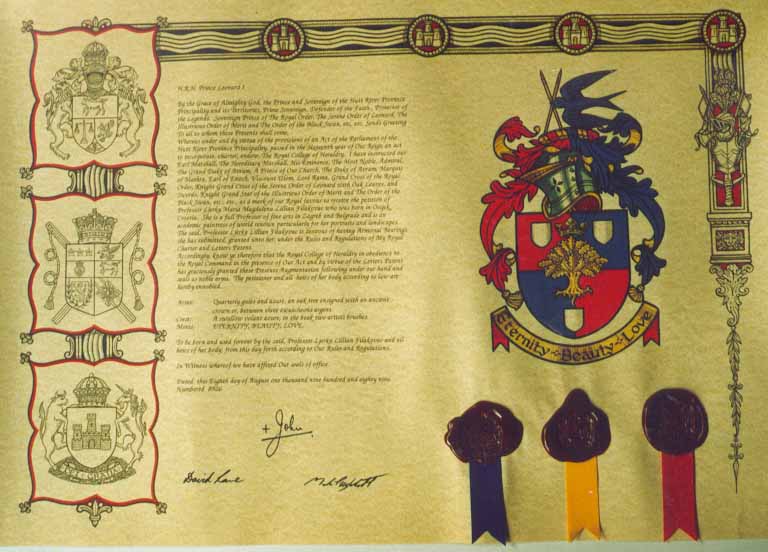 H.R.H. Prince Leonard I
By the Grace of Almighty God, the Prince and Sovereign of the Hutt River Province
Principality and its Territories, Prime Sovereign, Defender of the Faith, Protector of
the Legends, Sovereign Prince of The Royal Order, The Serene Order of Leonard, The
Illustrious Order of Merit and The Order of the Black Swan, etc. etc. Sends Greeting
To all to whom these Presents shall come,
Whereas under and by virtue of the provisions of an Act of the Parliament of the
Hutt River Province Principality, passed in the year of Our Reign an act
to incorporate, charter, endow, The Royal College of Heraldry, I have instructed our
Earl Marshall, The Hereditary Marshall, His Eminence, The Most Noble, Admiral,
The Grand Duke of Avram, A Prince of Our Church, The Duke of Avram, Marquis
of Matlea, Earl of Enoch, Viscount Ulom, Lord Rama, Grand Cross of the Royal
Order, Knight Grand Cross of the Serene Order of Leonard with Oak Leaves, and
Swords, Knight Grand Star of the Illustrious Order of Merit and The Order of the
Black Swan, etc., etc., as a mark of our Royal favour to receive the petition of
Professor Ljerky Maria Magdalena Lillian Filakovac who was born in Osijek,
Croatia. She is a full Professor of fine arts in Zagreb and Belgrade and is an
academic paintress of world renown particularly for her portraits and landscapes.
The said, Professor Ljerky Lillian Filakovac is desirous of having Armorial Bearings
she has submitted, granted unto her under the Rules and Regulations of My Royal
Charter and Letters Patent.
Accordingly, know ye therefore that the Royal College of Heraldry in obedience to
the Royal Command in the presence of Our Act and by Virtue of the Letters Patent
has graciously granted these Presents Augmentation following under our hand and
seals as noble arms. The petitioner and all heirs of her body according to law are
hereby ennobled.
Arms: Quarterly gules and azure, an oak tree ensigned with an ancient
crown or, between three escutcheons argent.
Crest: A swallow volant azure, in the beak two artist brushes.
Motto: ETERNITY, BEAUTY, LOVE.
To be born and used forever by the said, Professor Ljerky Lillian Filakovac and all
heirs of her body, from this day forth according to Our Rules and Regulations.
In Witness whereof we have affixed Our seals of office.
Dated, this Eighth day of August one thousand nine hundred and eighty nine
Numbered
+ John
David Lane
Eternity Beauty Love